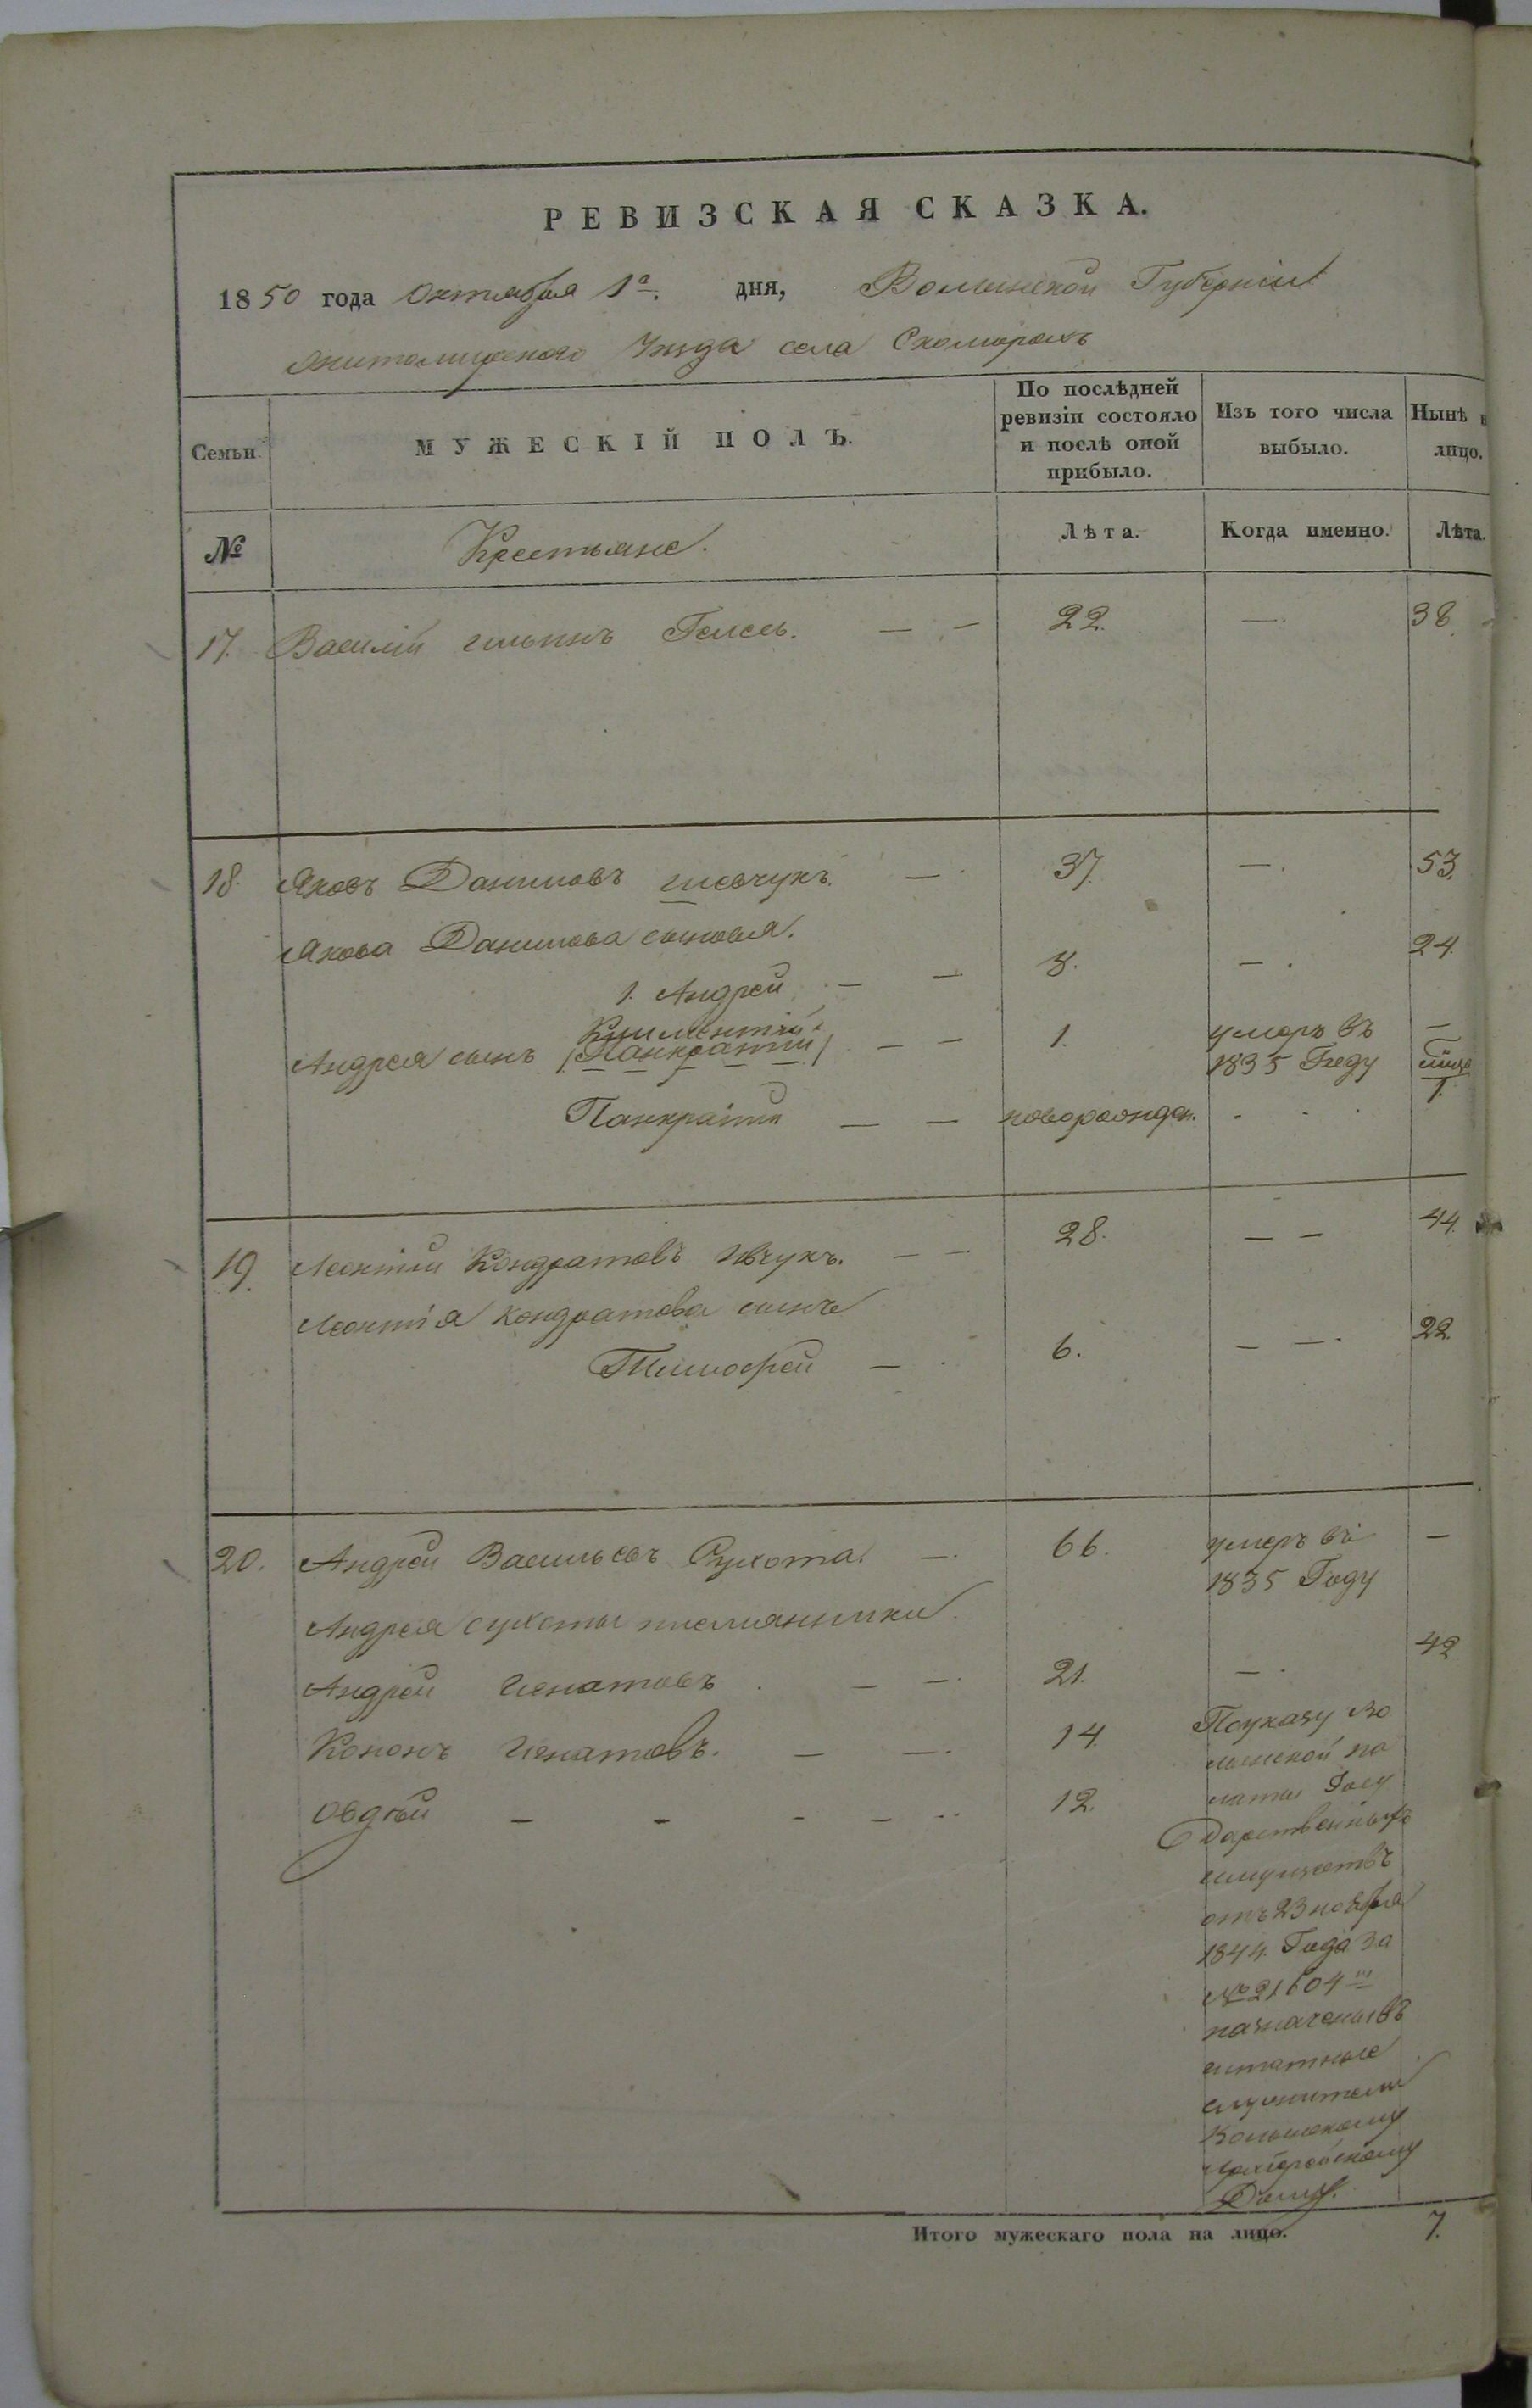 РЕВИЗСКАЯ СКАЗКА.
1850 года Октября 1го. дня, Волынской Губерніи
Житомирскаго Уезда села Скоморохъ
Семьи. МУЖЕСКІЙ ПОЛЪ. По послѣдней ревизіи состояло и послѣ оной прибыло. Изъ того числа выбыло. Нынѣ лицо.
№ Крестьяне. Лѣта. Когда именно. Лѣта.
17. Василій Ильинъ — — 22. — 38
18. Яковъ Даниловъ Шевчукъ. — 37. — 53.
Якова Данилова сыновья.
1. Андрей — — 8. — 24.
Климентій
Андрея сынъ (Панкратій) — — 1. умеръ въ —
1835 Году
Панкратій — — новорожден. 1.
19. Леонтій Кондратовъ Ивчукъ. — — 28. — — 44.
Леонтія Кондратова сынъ
Тимофей — 6. — — 22.
20. Андрей Васильевъ Сухота. — 66. умеръ въ —
1835 Году
Андрея Сухоты племянники
Андрей Игнатовъ — — 21. — 42
Кононъ Игнатовъ. — — 14.
Овдѣй — — — — 12.
По указу Во
лынской па
латы Госу
дарственныхъ
имуществъ
отъ 23 ноября
1844. Года за
№ 21604
назначены въ
штатные
служители
Волынскому
Архіерейскому
Дому.
Итого мужескаго пола на лицо. 7.